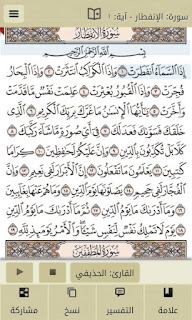 سورة: الإنفطار - آية: ١
سُورَةُ الانفِطَارِ
بِسْمِ اللَّهِ الرَّحْمَٰنِ الرَّحِيمِ
إِذَا السَّمَاءُ انفَطَرَتْ ١ وَإِذَا الْكَوَاكِبُ انتَثَرَتْ ٢ وَإِذَا الْبِحَارُ
فُجِّرَتْ ٣ وَإِذَا الْقُبُورُ بُعْثِرَتْ ٤ عَلِمَتْ نَفْسٌ مَّا قَدَّمَتْ
وَأَخَّرَتْ ٥ يَٰأَيُّهَا الْإِنسَٰنُ مَا غَرَّكَ بِرَبِّكَ الْكَرِيمِ ٦ الَّذِي
خَلَقَكَ فَسَوَّىٰكَ فَعَدَلَكَ ٧ فِي أَيِّ صُورَةٍ مَّا شَاءَ رَكَّبَكَ ٨
كَلَّا بَلْ تُكَذِّبُونَ بِالدِّينِ ٩ وَإِنَّ عَلَيْكُمْ لَحَٰفِظِينَ ١٠ كِرَامًا
كَٰتِبِينَ ١١ يَعْلَمُونَ مَا تَفْعَلُونَ ١٢ إِنَّ الْأَبْرَارَ لَفِي نَعِيمٍ ١٣ وَإِنَّ
الْفُجَّارَ لَفِي جَحِيمٍ ١٤ يَصْلَوْنَهَا يَوْمَ الدِّينِ ١٥ وَمَا هُمْ عَنْهَا بِغَائِبِينَ
١٦ وَمَا أَدْرَىٰكَ مَا يَوْمُ الدِّينِ ١٧ ثُمَّ مَا أَدْرَىٰكَ مَا يَوْمُ الدِّينِ
١٨ يَوْمَ لَا تَمْلِكُ نَفْسٌ لِّنَفْسٍ شَيْئًا وَالْأَمْرُ يَوْمَئِذٍ لِّلَّهِ ١٩
سُورَةُ المُطَفِّفِينَ
القارئ: الحذيفي
علامة
التفسير
نسخ
مشاركة